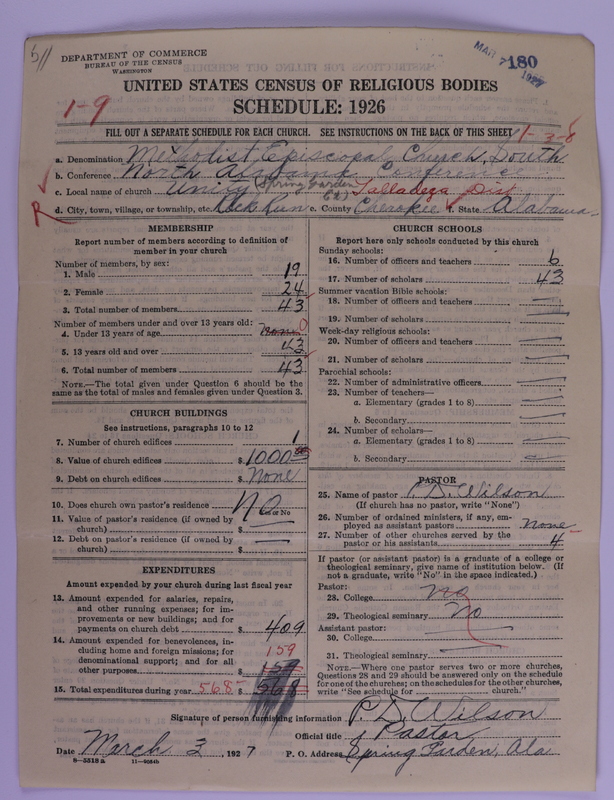 511
DEPARTMENT OF COMMERCE
BUREAU OF THE CENSUS
WASHINGTON
MAR 7 1927
180
UNITED STATES CENSUS OF RELIGIOUS BODIES
SCHEDULE: 1926
1-9
FILL OUT A SEPARATE SCHEDULE FOR EACH CHURCH. SEE INSTRUCTIONS ON THE BACK OF THIS SHEET
1-3-8
a. Denomination Methodist Episcopal Church, South
b. Conference North Alabama Conference
c. Local name of church Unity (Spring Garden Ct) Talladega Dist
R d. City, town, village, or township, etc. Rock Run e. County Cherokee f. State Alabama
MEMBERSHIP
Report number of members according to definition of member in your church
Number of members, by sex:
1. Male 19
2. Female 24
3. Total number of members 43
Number of members under and over 13 years old:
4. Under 13 years of age None 0
5. 13 years old and over 43
6. Total number of members 43
NOTE.—The total given under Question 6 should be
same as the total of males and females given under Question 3.
CHURCH BUILDINGS
See instructions, paragraphs 10 to 12
7. Number of church edifices 1
8. Value of church edifices $ 1000.00
9. Debt on church edifices $ None
10. Does church own pastor's residence? No
Yes or No
11. Value of pastor's residence (if owned by
church) $
12. Debt on pastor's residence (if owned by
church) $
EXPENDITURES
Amount expended by your church during last fiscal year
13. Amount expended for salaries, repairs,
and other running expenses; for im-
provements or new buildings; and for
payments on church debt $ 409
14. Amount expended for benevolences, in-
cluding home and foreign missions; for
denominational support; and for all
other purposes $ 159 159
15. Total expenditures during year 568 $ 568
CHURCH SCHOOLS
Report here only schools conducted by this church
Sunday schools:
16. Number of officers and teachers 6
17. Number of scholars 43
Summer vacation Bible schools:
18. Number of officers and teachers
19. Number of scholars
Week-day religious schools:
20. Number of officers and teachers
21. Number of scholars
Parochial schools:
22. Number of administrative officers
23. Number of teachers—
a. Elementary (grades 1 to 8)
b. Secondary
24. Number of scholars—
a. Elementary (grades 1 to 8)
b. Secondary
PASTOR
25. Name of pastor P. D. Wilson
(If church has no pastor, write "None")
26. Number of ordained ministers, if any, em-
ployed as assistant pastors none
27. Number of other churches served by the
pastor or his assistants 4
If pastor (or assistant pastor) is a graduate of a college or
theological seminary, give name of institution below. (If
not a graduate, write "No" in the space indicated.)
Pastor:
28. College No
29. Theological seminary No
Assistant pastor:
30. College
31. Theological seminary
NOTE.—Where one pastor serves two or more churches,
Questions 28 and 29 should be answered only on the schedule
for one of the churches; on the schedules for the other churches,
write "See schedule for church."
Signature of person furnishing information P. D. Wilson
Official title Pastor
Date March 3, 1927 P. O. Address Spring Garden, Ala
8—5518a 11—9084b